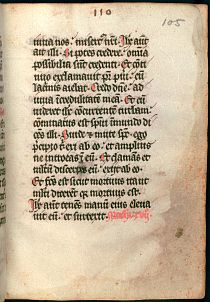 110
105
iuva nos · misert' nri. Ihs aut
ait illi. Si potes credere. omnia
possibilia sunt credenti. Et coti
nuo exclamavit pr pueri. cu
lacrimis aiebat. Credo dne. ad
iuva incredulitate mea. Et cu
videret ihs concurrente turbam.
cominatus est spui inmundo di
cens illi. Surde et mute sps. ego
precipio tibi exi ab eo. et amplius
ne introeas i eu. Et clamans et
multu discerpes eu. exiit ab eo.
Et fcus est sicut mortuus ita ut
multi dicerent qr mortuus est.
Ihs aut tenens manu eius eleva
uit eum. et surrexit.